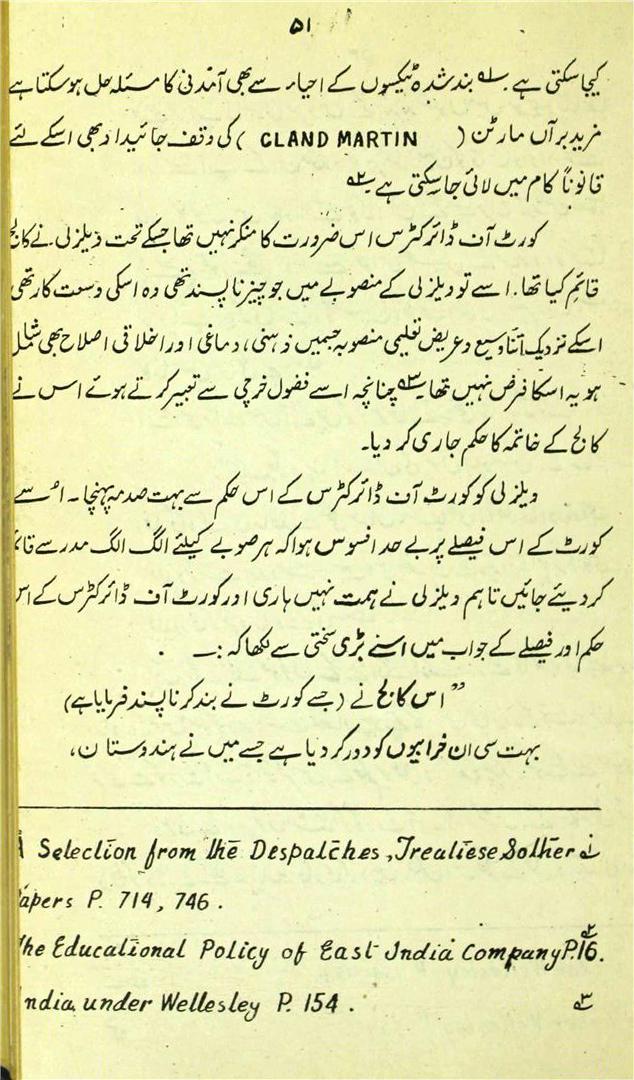 ۵۱
کیجا سکتی ہے۔ ۱؎ بند شدہ ٹیکسوں کے احیاء سے بھی آمدنی کا مسئلہ حل ہو سکتا ہے
مزید برآں مارٹن ( CLAND MARTIN ) کی وقف جائیداد بھی اسکے لئے
قانوناً کام میں لائی جا سکتی ہے ۲؎
کورٹ آف ڈائرکٹرس اس ضرورت کا منکر نہیں تھا جسکے تحت ویلزلی نے کالج
قائم کیا تھا۔ اسے تو ویلزلی کے منصوبے میں جو چیز ناپسند تھی وہ اسکی وسعت کار تھی
اسکے نزدیک اتنا وسیع و عریض تعلیمی منصوبہ جسمیں ذہنی، دماغی اور اخلاقی اصلاح بھی شامل
ہو یہ اسکا فرض نہیں تھا۔ ۳؎ چنانچہ اسے فضول خرچی سے تعبیر کرتے ہوئے اس نے
کالج کے خاتمہ کا حکم جاری کر دیا۔
ویلزلی کو کورٹ آف ڈائرکٹرس کے اس حکم سے بہت صدمہ پہنچا۔ اُسے
کورٹ کے اس فیصلے پر بے حد افسوس ہوا کہ ہر صوبے کیلئے الگ الگ مدرسے قائم
کر دیئے جائیں تاہم ویلزلی نے ہمت نہیں ہاری اور کورٹ آف ڈائرکٹرس کے اس
حکم اور فیصلے کے جواب میں اسنے بڑی سختی سے لکھا کہ :۔
”اس کالج نے (جسے کورٹ نے بند کرنا پسند فرمایا ہے)
بہت سی ان خرابیوں کو دور کر دیا ہے جسے میں نے ہندوستان،
۱؎ A Selection from the Despatches, Trealiese & other
Papers P. 714, 746 .
۲؎ The Educational Policy of East India Company P.16.
۳؎ India under Wellesley P. 154 .